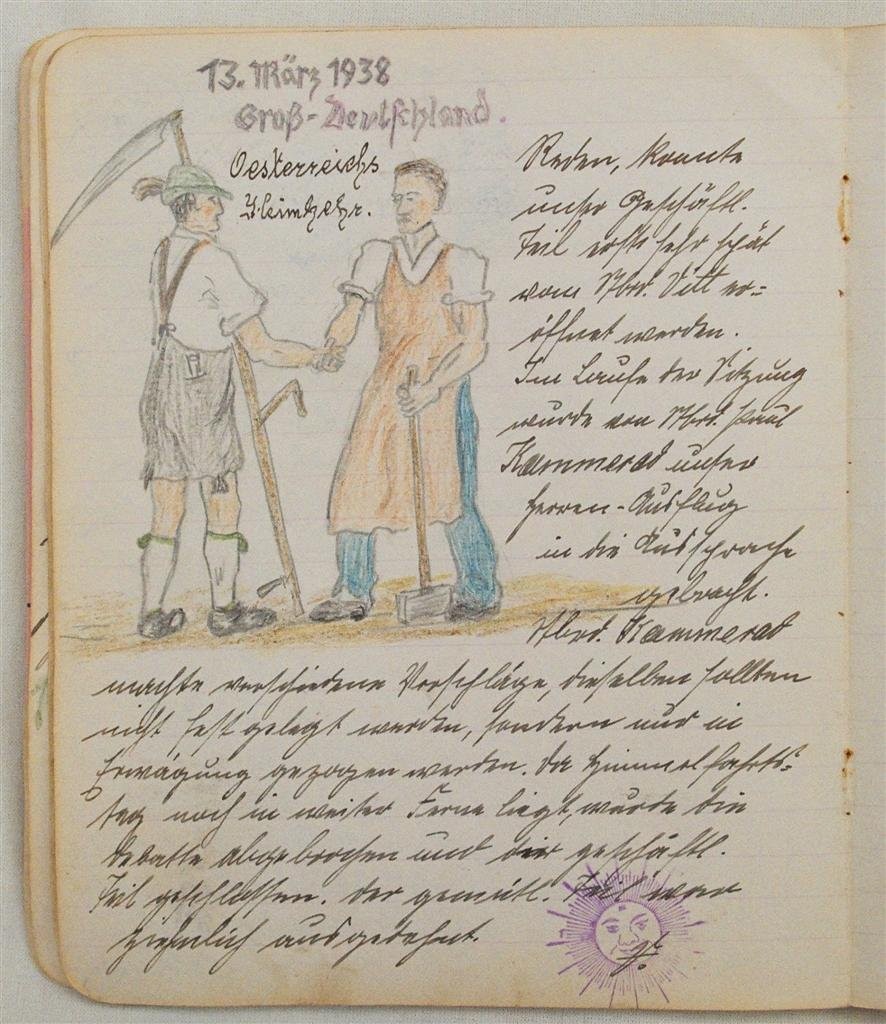 13. März 1938
Groß-Deutschland.
Oesterreichs
Heimkehr.
Reden, konnte
unser Geschäftl.
Teil erst sehr spät
vom Nbrd. Vitt er=
öffnet werden.
Im Laufe der Sitzung
wurde von Nbrd. Paul
Kammerad unser
Herren-Ausflug
in die Aussprache
gebracht.
Nbrd. Kammerad
machte verschiedene Vorschläge, dieselben sollten
nicht fest gelegt werden, sondern nur in
Erwägung gezogen werden. Da Himmelfahrts=
tag noch in weiter Ferne liegt, wurde die
Debatte abgebrochen und der geschäftl.
Teil geschlossen. Der gemütl. Teil war
ziemlich ausgedehnt.